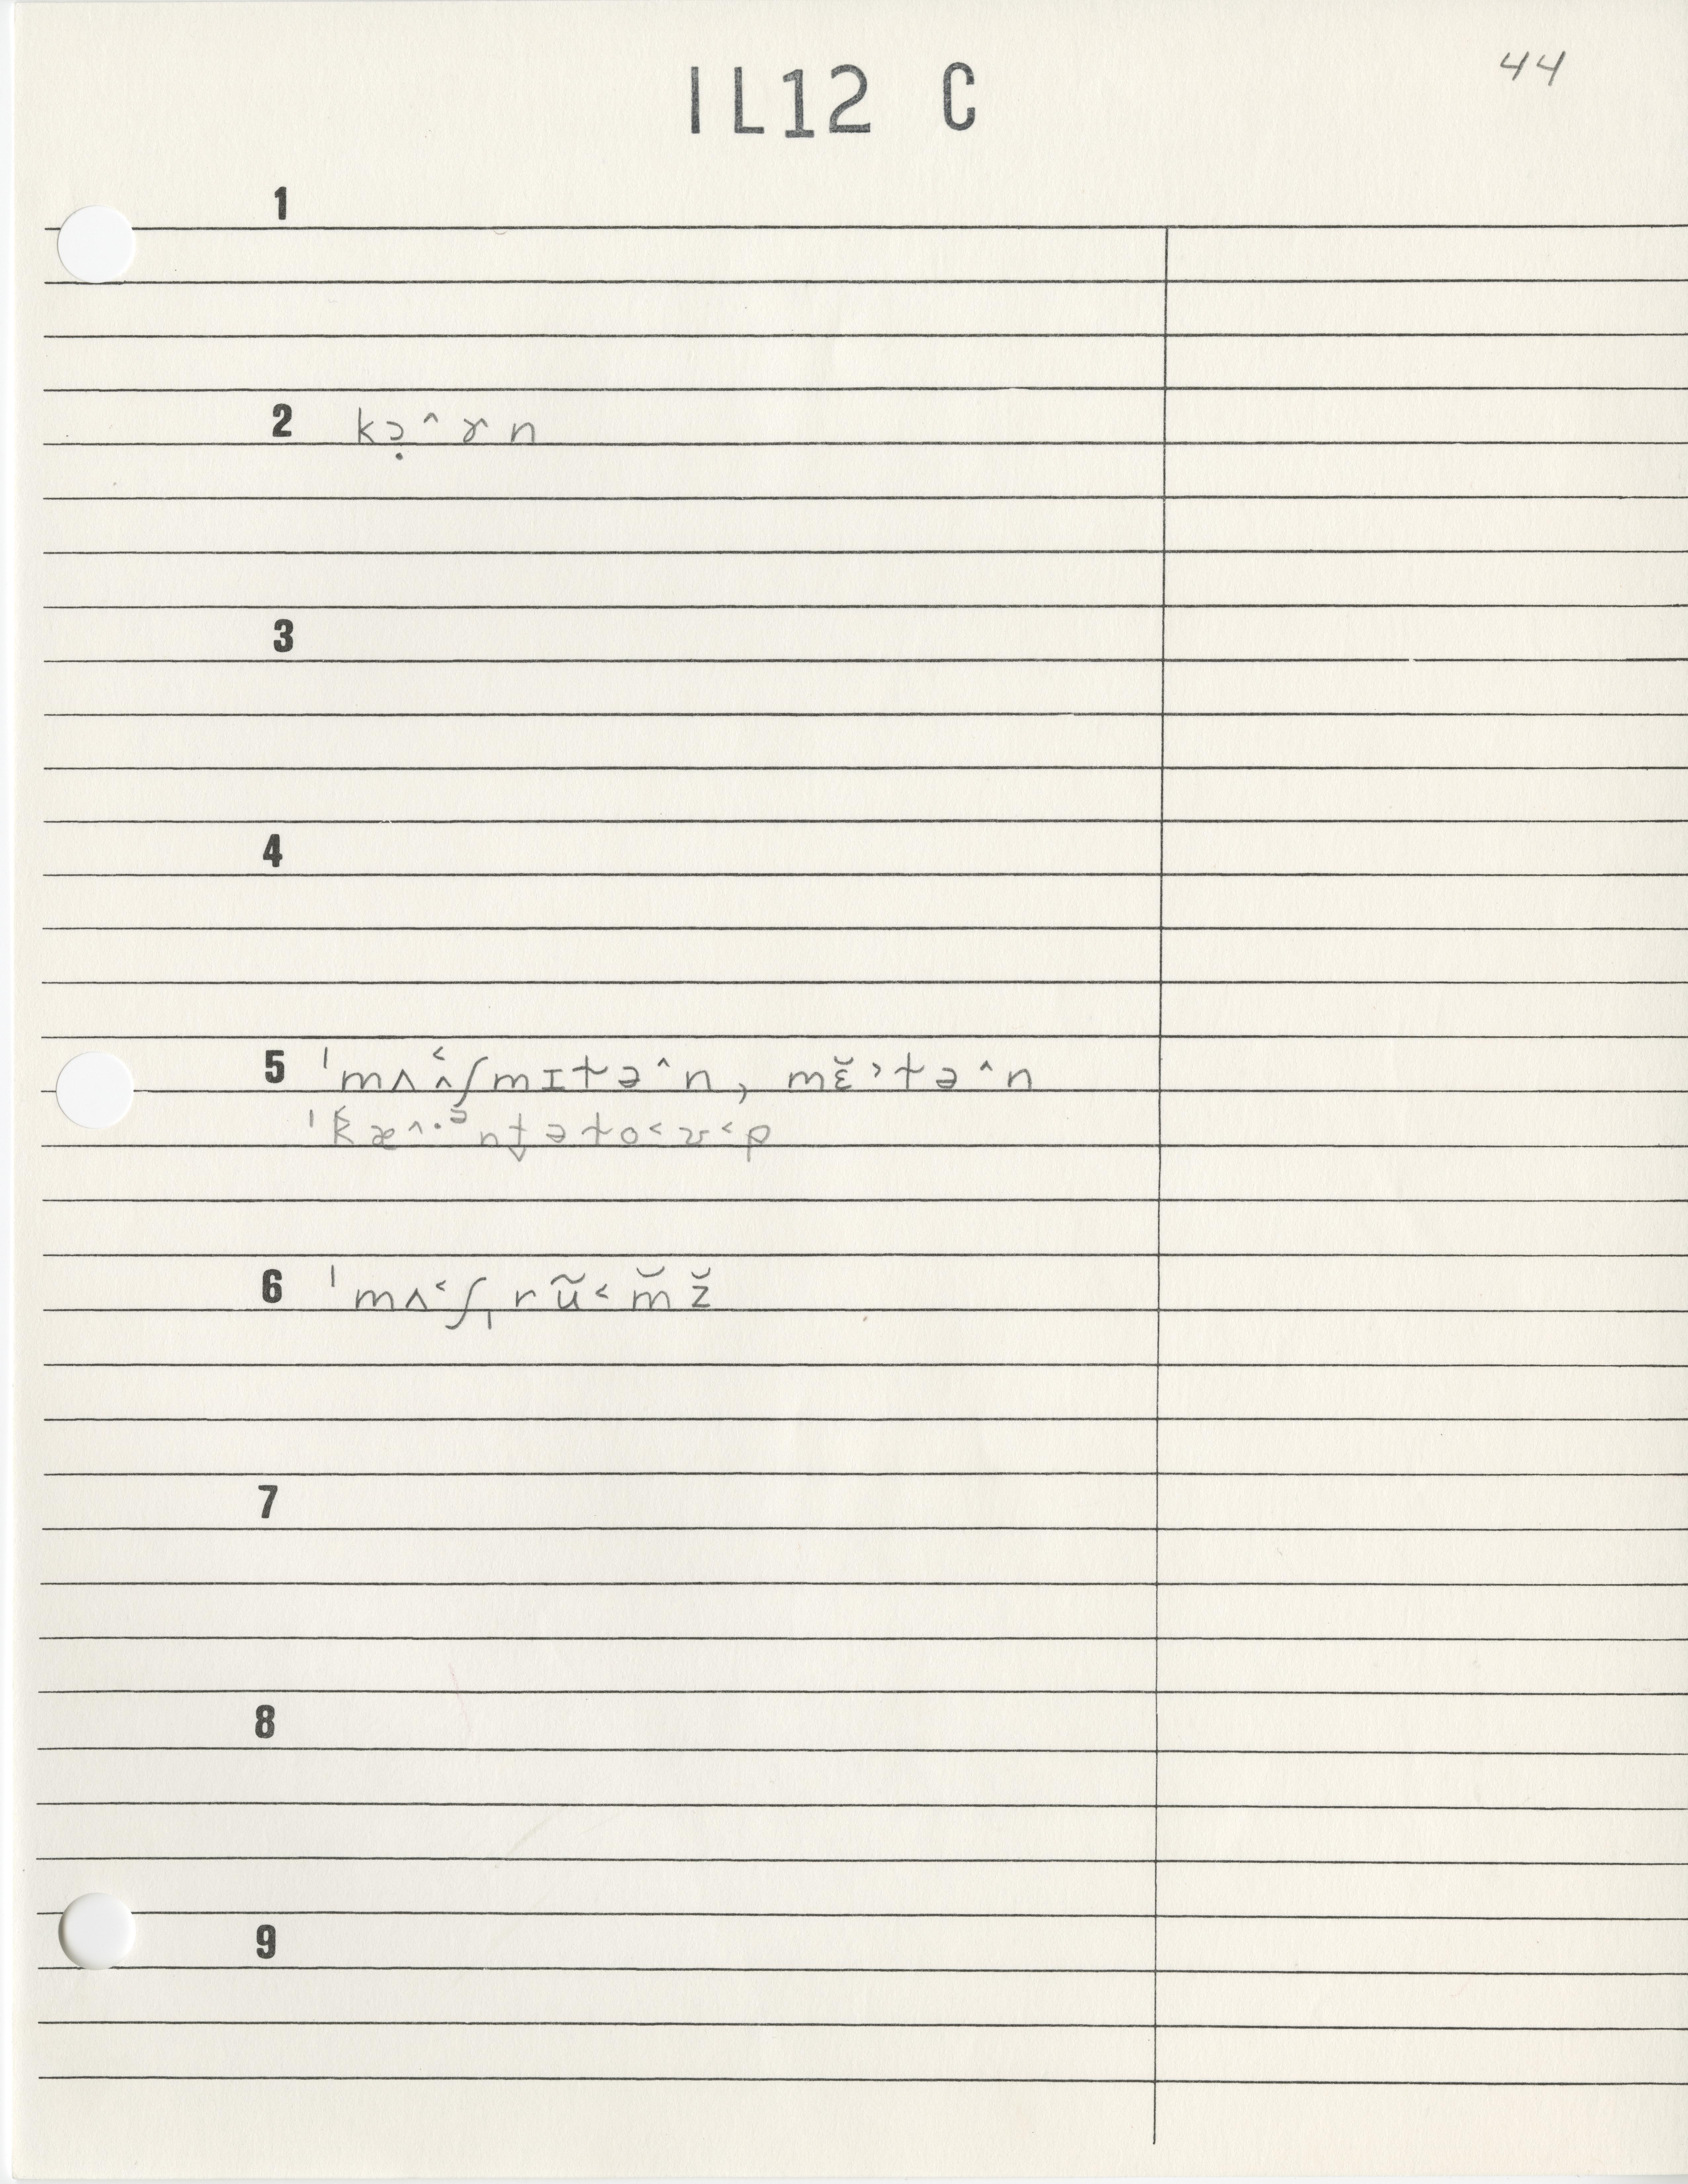 44
IL12 C
1
2 kɔ̣ˆɤn
3
4
5 ˈmʌ˂ʌ̂ʃmɪt̬əˆn, mɛ̆˃t̬əˆn
ˈkæˆ·ə̆nt̬ət̬o˂ʊ˂p
6 ˈmʌ˂ʃˌrũ˂m̆z̆
7
8
9